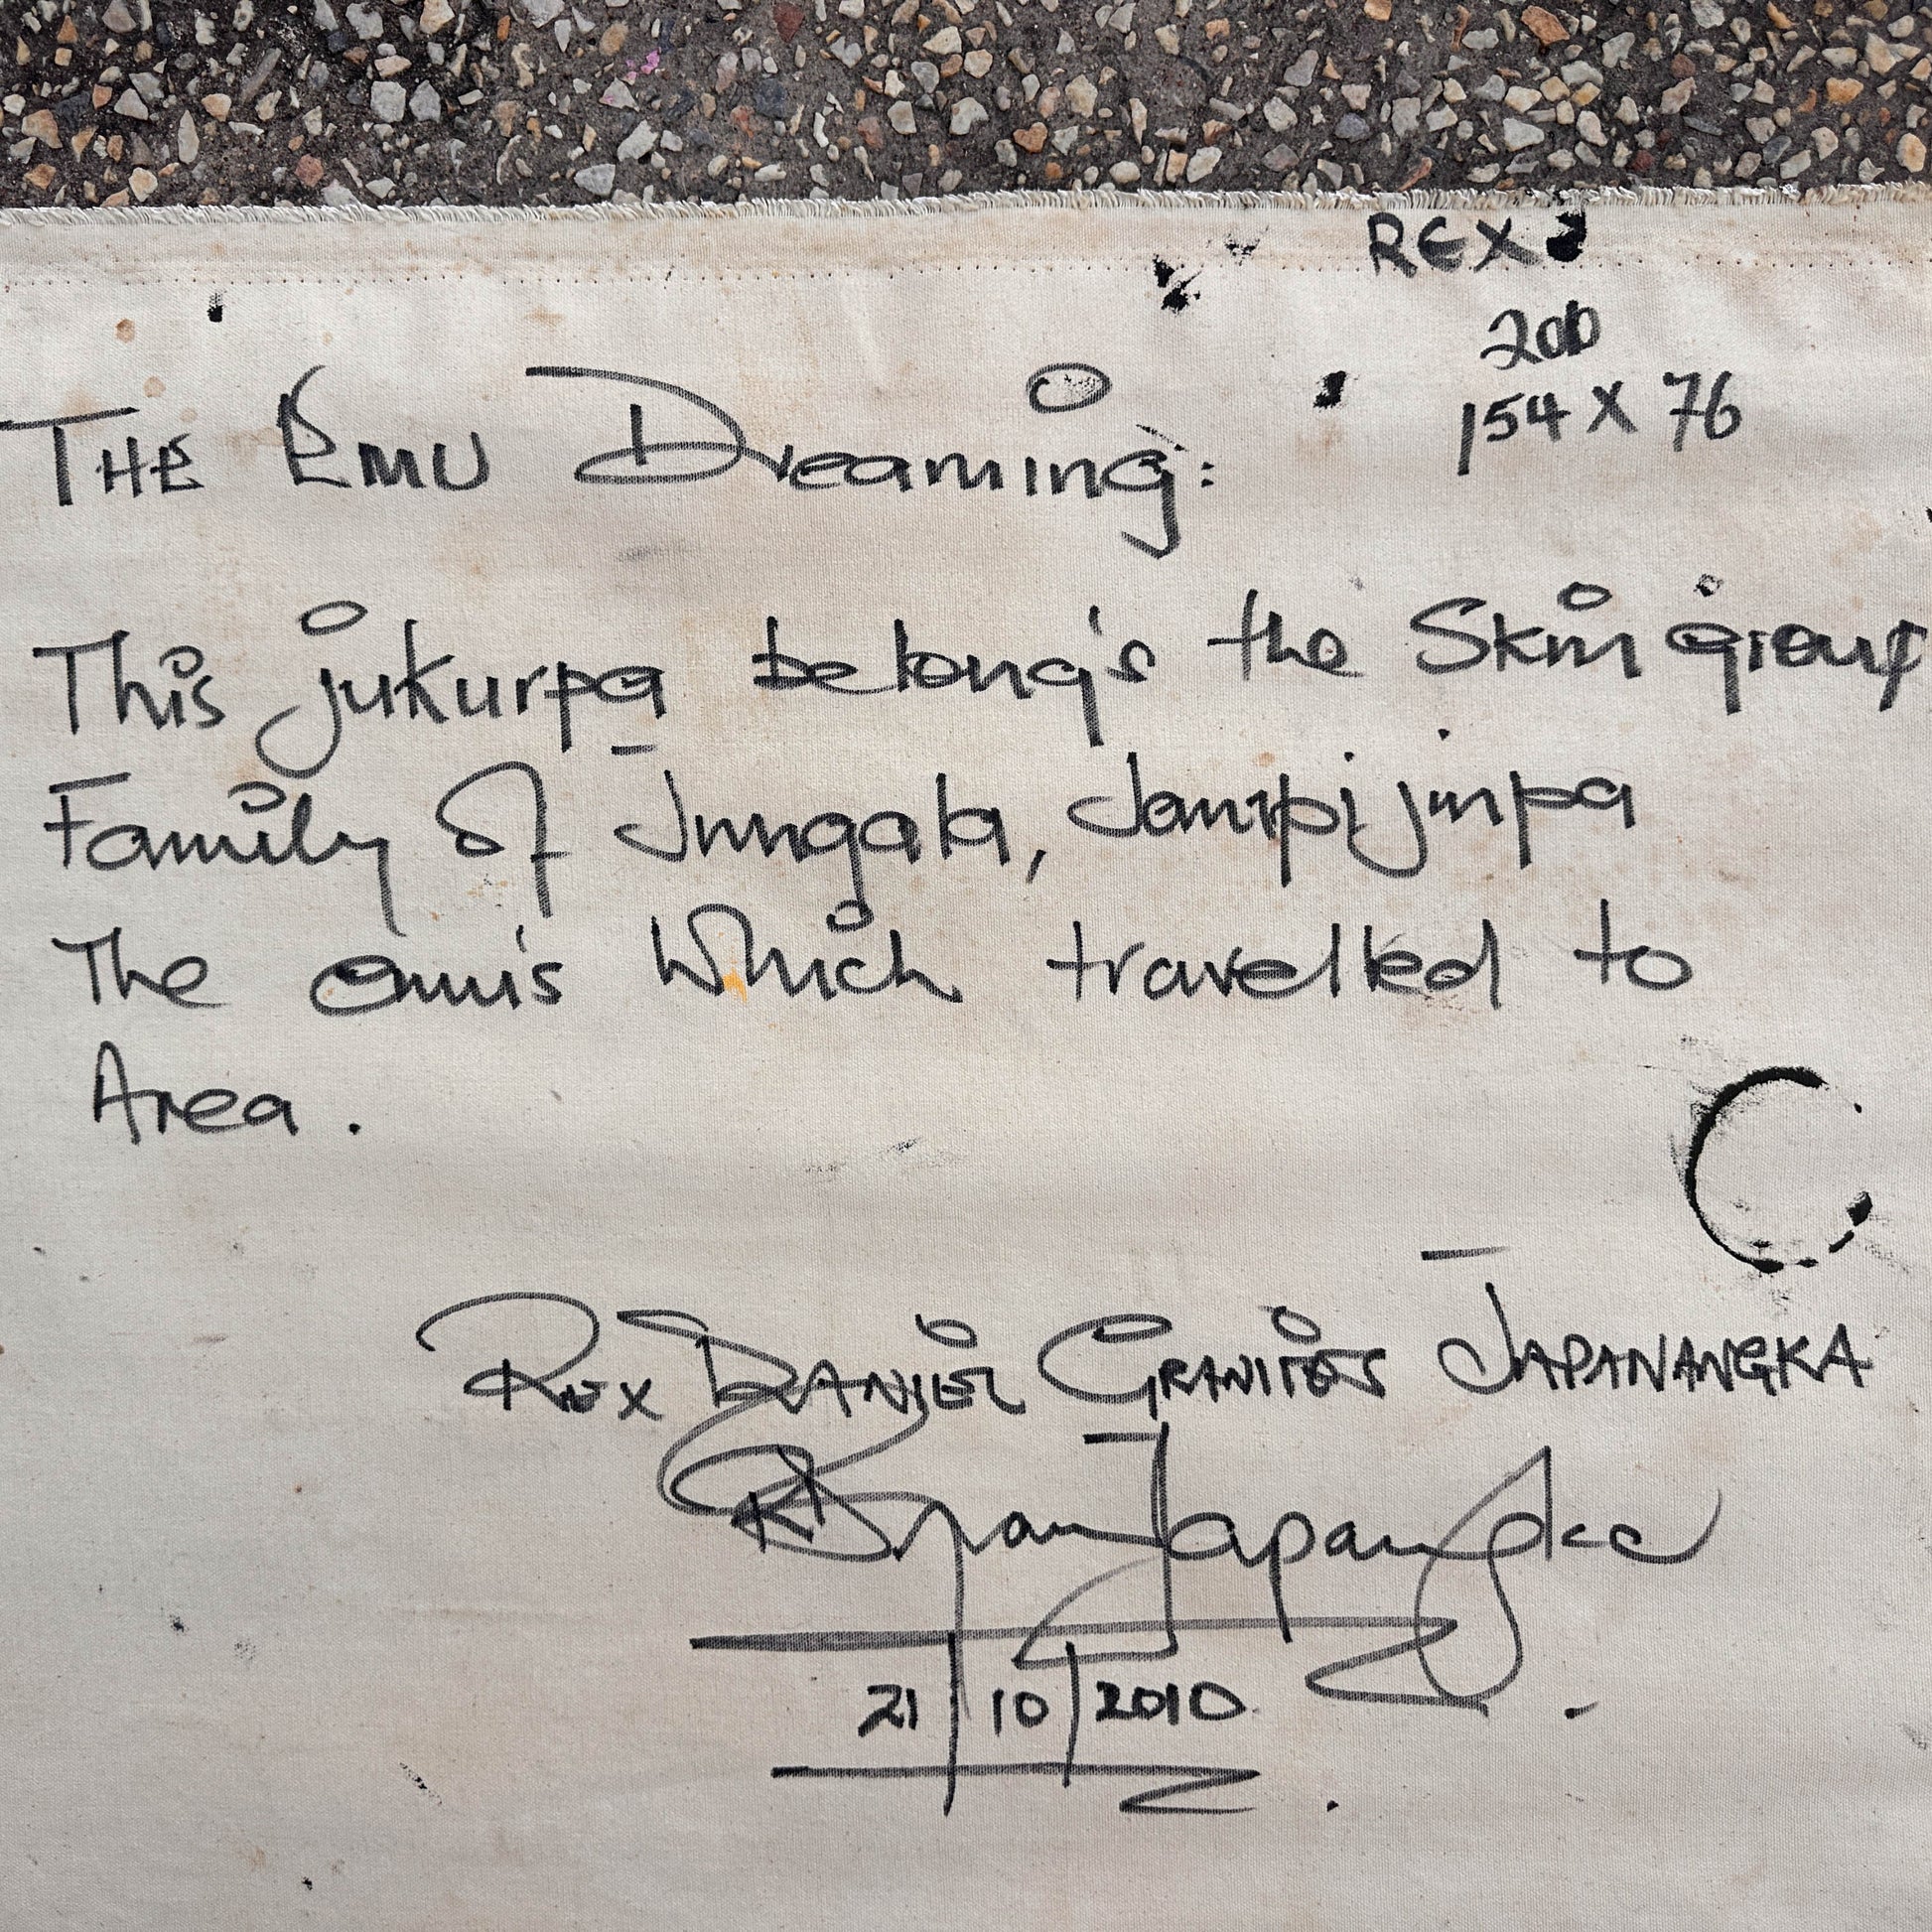 REX
200
154 X 76
THE EMU Dreaming:
This jukurpa belong's the Skin group
Family of Jungala, Jampijinpa
The emu's Which travelled to
Area.
REX DANIEL GRANITES JAPANANGKA
21/10/2010